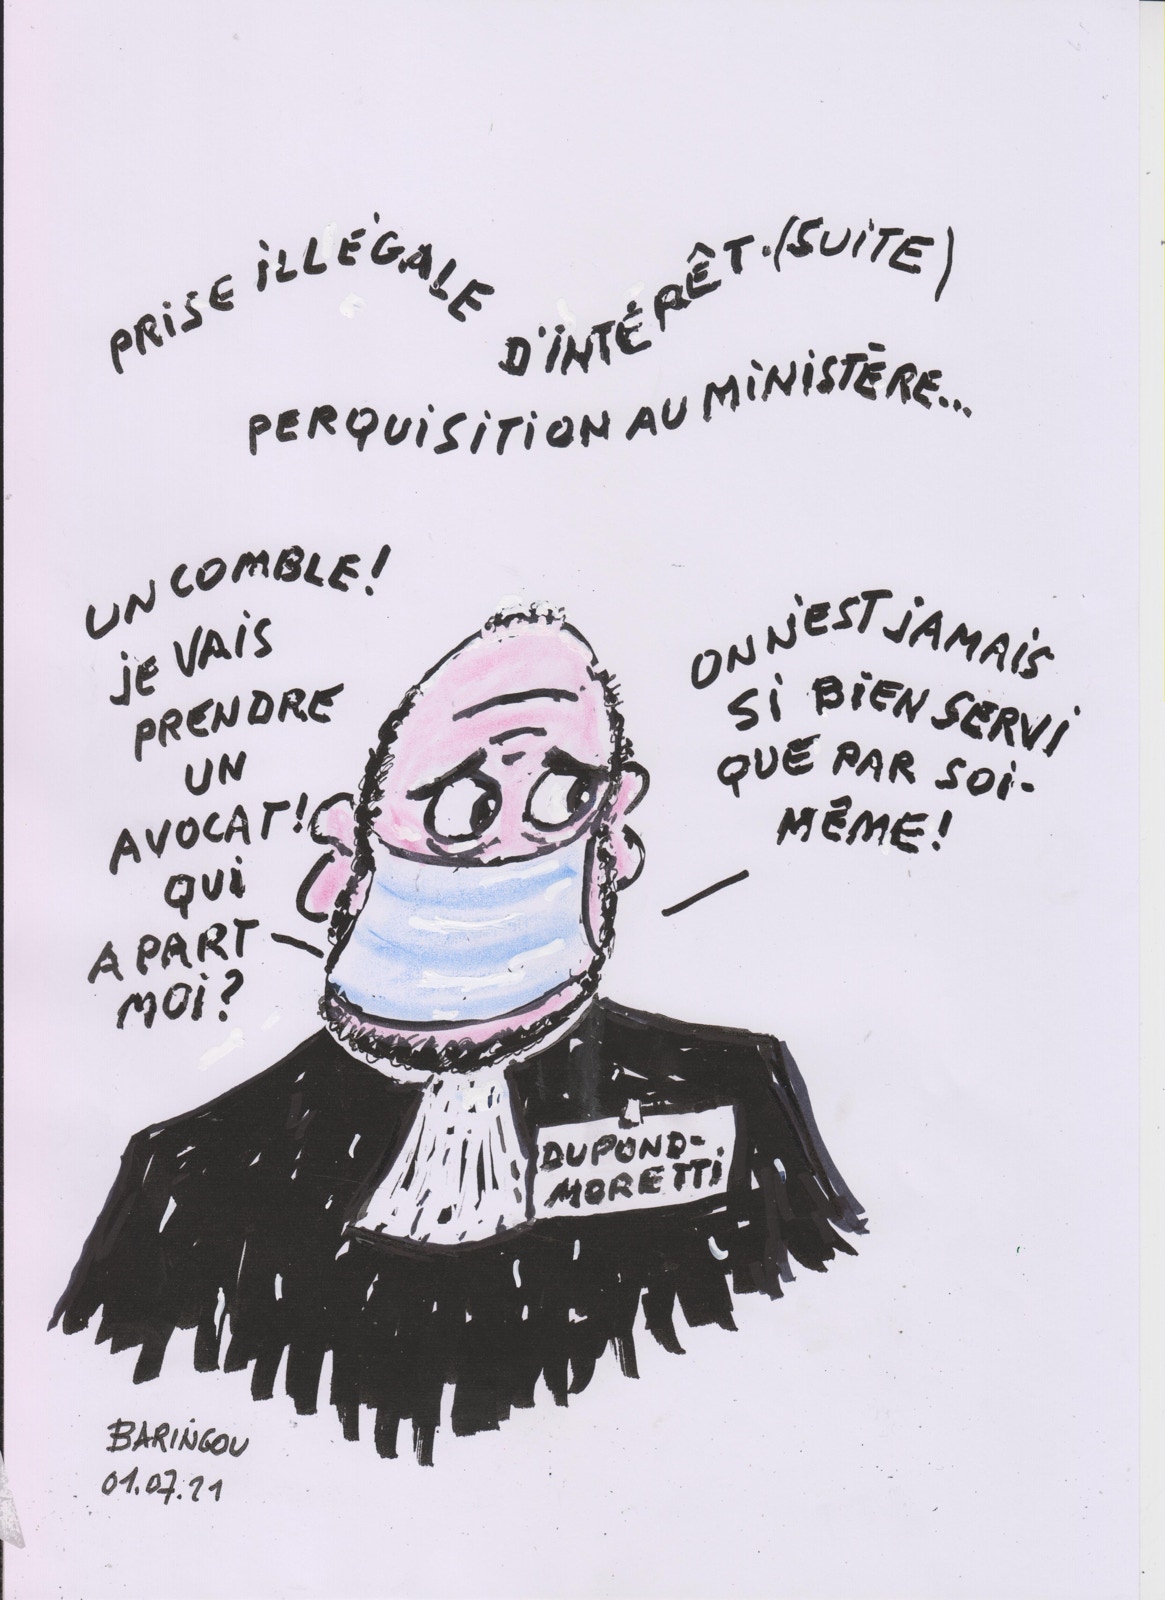 PRISE ILLÉGALE
D'INTÉRÊT. (SUITE)
PERQUISITION AU MINISTÈRE...
UN COMBLE!
JE VAIS
PRENDRE
UN
AVOCAT!
QUI
A PART
MOI?
ON N'EST JAMAIS
SI BIEN SERVI
QUE PAR SOI-
MÊME!
DUPOND-
MORETTI
BARINGOU
01.07.21